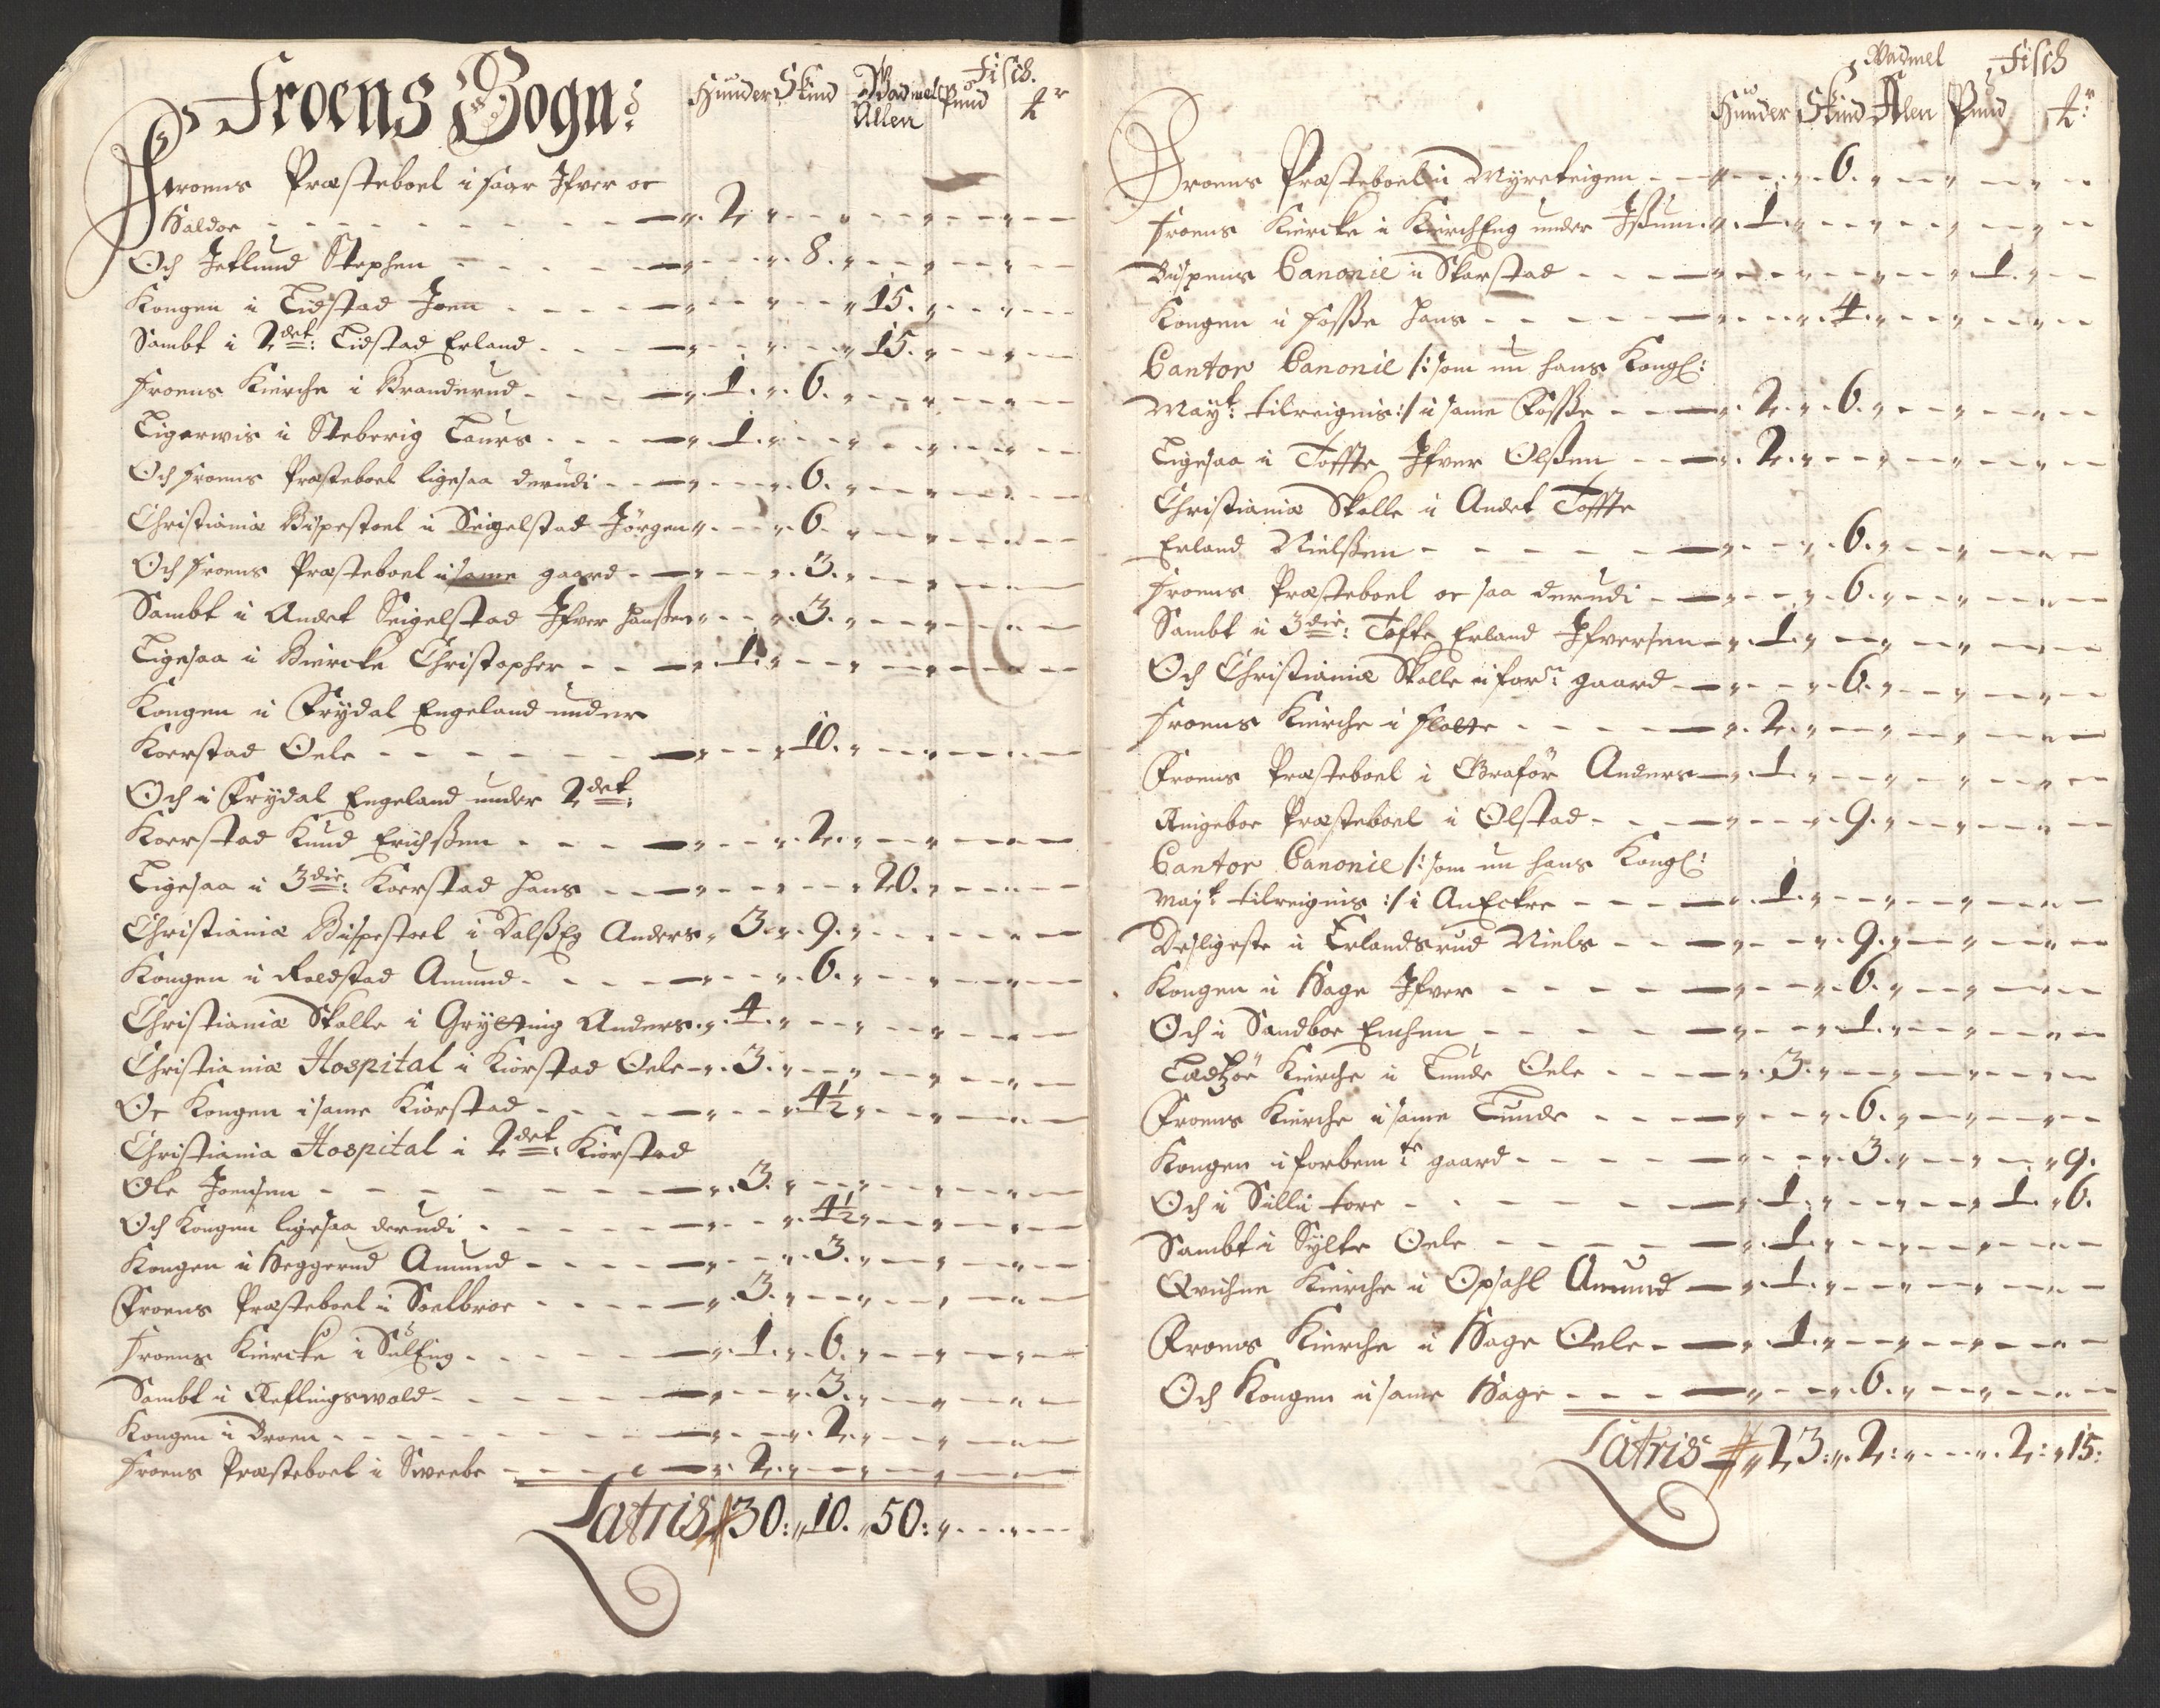 Froens Sogn:
Hunder Skind Wadmel Allen Fisch. Pund ℔r
Froens Præsteboel i Haar Ifver oc
Haldor - - - - 2.
Och Jetlund Stephen - - - 8.
Kongen i Lidstad Joen - - - 15.
Sambt i 2det: Lidstad Erland - - - 15.
Froens Kierche i Branderud - - - 1. 6.
Ligerwis i Steberig Laurs - - - 1.
Och Froens Præsteboel ligesaa derudi - - 6.
Christianiæ Bispestoel i Seigelstad Jörgen - 6.
Och Froens Præsteboel i same gaard - - 3.
Sambt i Andet Seigelstad Ifver Hanßen - 3.
Ligesaa i Biercke Christopher - - 1.
Kongen i Frydal Engeland under
Korstad Oele - - - 10.
Och i Frydal Engeland under 2det:
Korstad Knud Erichßen - - - 2.
Ligesaa i 3die: Korstad Hans - - - 20.
Christianiæ Bispestoel i Dalßeg Anders 3. 9.
Kongen i Rolstad Amund - - - 6.
Christianiæ Skolle i Grytting Anders 4.
Christianiæ Hospital i Kiorstad Oele - 3.
Oc Kongen i same Kiorstad - - - 4½
Christiania Hospital i 2det: Kiorstad
Ole Joensen - - - 3.
Och Kongen ligesaa derudi - - - 4½
Kongen i Heggerud Amund - - - 3.
Froens Præsteboel i Soelbroe - - - 3.
Froens Kiercke i SulEng - - - 1. 6.
Sambt i Reflingswold - - - 3.
Kongen i Broen - - - 2.
Froens Præsteboel i Sweebe - - - 2.
Latris 30: 10. 50:
Hunder Skind Wadmel Alen Fisch Pund ℔r:
Froens Præsteboel i Myreteigen - - 6.
Froens Kiercke i KirchEng under Ißum 1.
Bispens Canonie i Skarstad - - - 1.
Kongen i Foße Hans - - - 4.
Cantor Canonie /: som nu hans Kongl:
Mayt: tilreignis :/ i same Foße - - 2. 6.
Ligesaa i Toffte Ifver Olßen - - 2.
Christianiæ Skolle i Andet Toffte
Erland Nielßen - - - 6.
Froens Præsteboel oc saa derudi - - 6.
Sambt i 3die: Tofte Erland Ifversen - 1.
Och Christianiæ Skolle i forn: gaard - 6.
Froens Kierche i Flotte - - - 2.
Froens Præsteboel i Graför Anders - 1.
Ringeboe Præsteboel i Olstad - - 9.
Cantor Canonie /: som nu hans Kongl:
Mayt: tilreignis :/ i AnEckre - - - 1.
Desligeste i Erlandsrud Niels - - 9.
Kongen i Hage Ifver - - - 6.
Och i Sandboe Enchen - - - 1.
Lædzöe Kierche i Lunde Oele - - 3.
Froens Kierche i same Lunde - - - 6.
Kongen i forbemte: gaard - - - 3. 9.
Och i Sillii tore - - - 1. 1. 6.
Sambt i Sylte Oele - - - 1.
Qvichne Kierche i Opsahl Amund - 1.
Froens Kierche i Hage Oele - - 1.
Och Kongen i same Hage - - - 6.
Latris 23: 2: 2: 15: